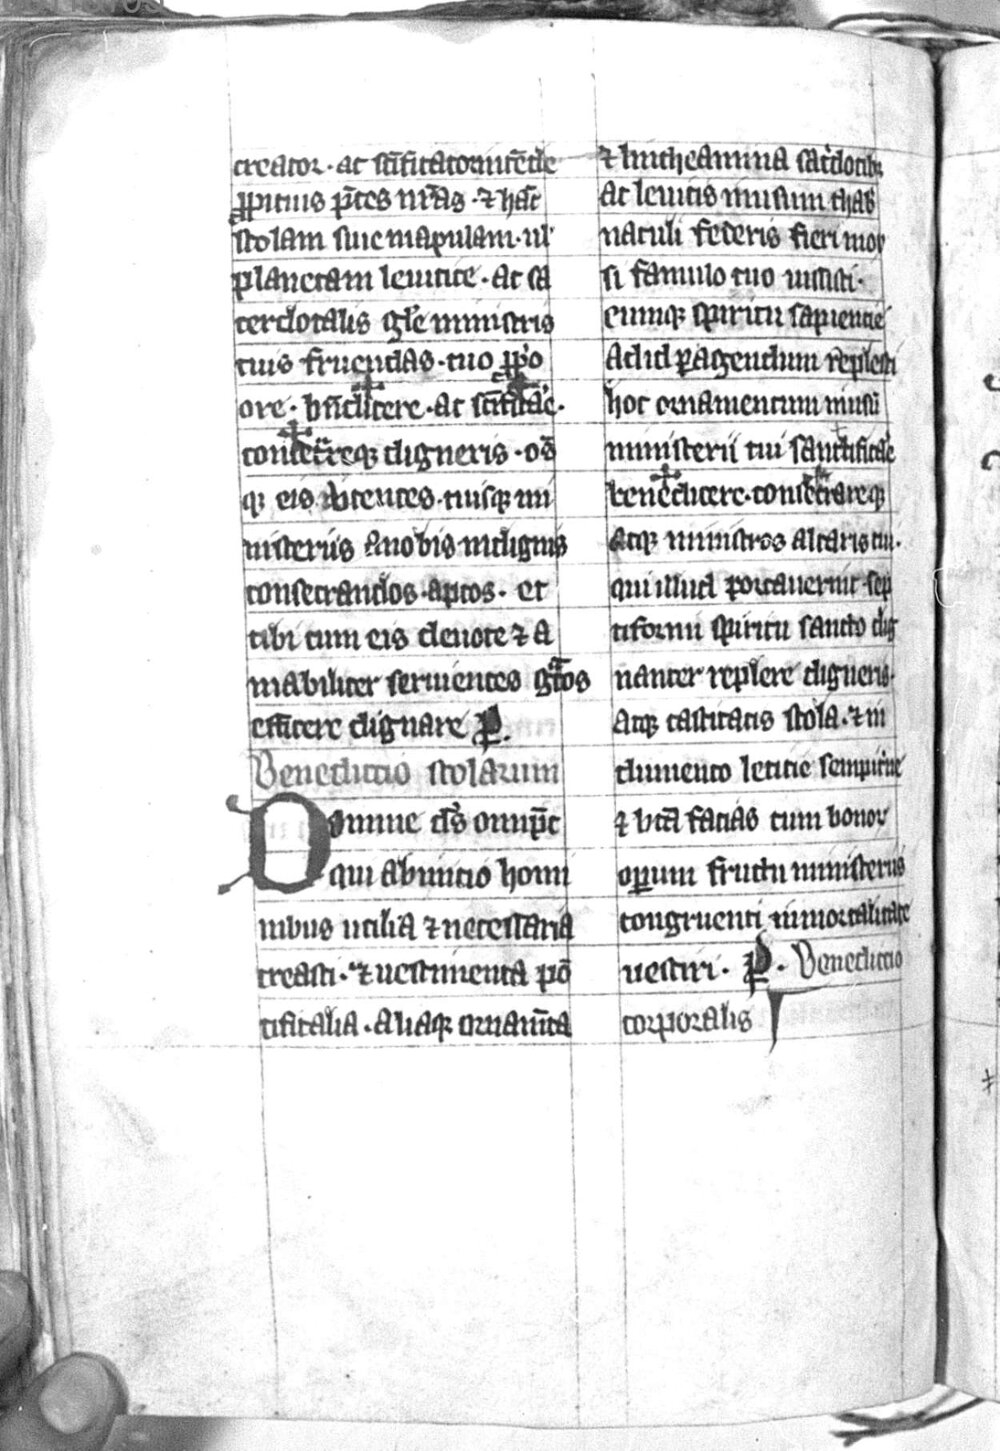 creator · ac sc̄ificator intēde
ꝓpitius p̄ces nr̄as · ⁊ hāc
stolam siue mapulam · ul'
planetam leuitice · ac sa
cerdotalis gl'e ministris
tuis fruendas · tuo ꝓp'o
ore · bn̄dicere · ac sc̄ificar̄e ·
consec̄reqꝫ digneris · oō
qꝫ eis utentes · tuisqꝫ mi
nisteriis a nobis indignis
consecrandos · aptos · et
tibi cum eis deuote ⁊ a
mabiliter seruientes gͣtos
efficere dignare P.
Benedictio stolarum
Domine ds̄ omnip̄c
qui ab inicio homi
nibus utilia ⁊ necessaria
creasti · ⁊ uestimenta pō
tificalia · aliaqꝫ ornam̄ta
⁊ lintheamina sac̉dotibꝫ
ac leuitis
naculi federis fieri moy
si famulo tuo iussisti ·
eumqꝫ spiritu sapiencie
ad id ꝑagendum replesti
hoc ornamentum in usū
ministerii tui sanctificar̄e
benedicere · consecrareqꝫ
atqꝫ ministros altaris tui ·
qui illud portauerint · sep
tiformi spiritu sancto dig
nanter replere digneris ·
atqꝫ castitatis stola · ⁊ in
dumento leticie sempit̉ne
⁊ bt̄a facias cum bonoꝝ
oꝑum fructu ministeriis
congruenti immortalitate
uestiri · P · Benedictio
corporalis